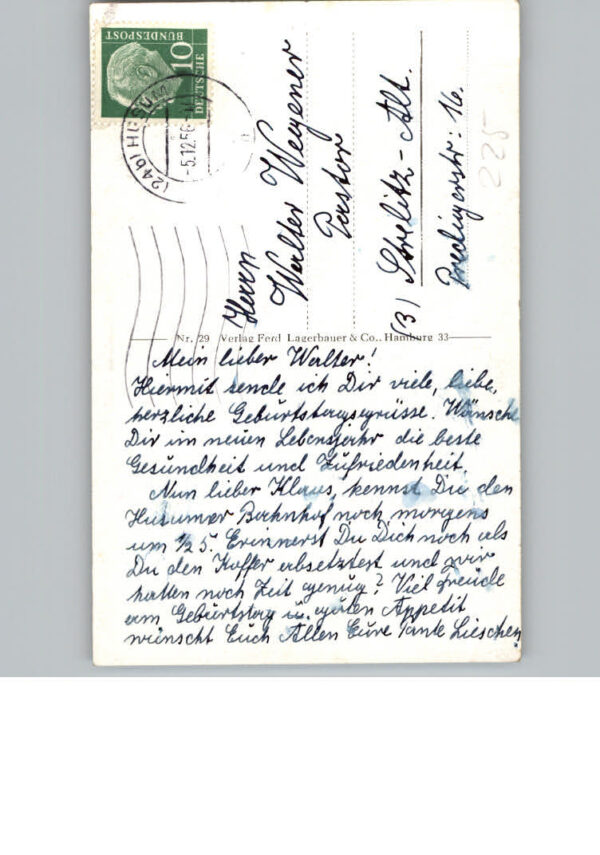 10
DEUTSCHE
BUNDESPOST
(24b) HUSUM
-5.12.56
Herrn
Walter Wegener
Pastor
(3) Strelitz-Alt.
Predigerstr: 16.
225
Nr. 29 Verlag Ferd Lagerbauer & Co., Hamburg 33
Mein lieber Walter!
Hiermit sende ich Dir viele, liebe,
herzliche Geburtstagsgrüsse. Wünsche
Dir im neuen Lebensjahr die beste
Gesundheit und Zufriedenheit.
Nun lieber Klaus, kennst Du den
Husumer Bahnhof noch morgens
um 1/2 5. Erinnerst Du Dich noch als
Du den Koffer absetztest und wir
hatten noch Zeit genug? Viel Freude
am Geburtstag u. guten Appetit
wünscht Euch Allen Eure Tante Lieschen